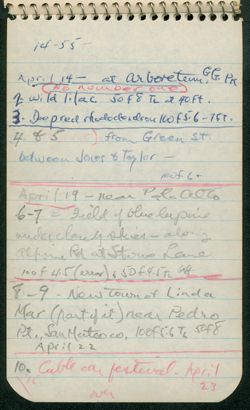 14-55-
April 14 - at Arboretum, G.G. Pk
(No number one)
2. Wild lilac 50 f 8 To at 40 ft.
3. Deep red rhododendron 100 f 5.6 - 75 ft.
4 & 5 from Green St.
between Jones & Taylor -
100 f 6+
April 19 - near Palo Alto
6-7 = Field of blue lupine
under cloudy skies - along
Alpine Rd at Stowe Lane
100 f 4.5 (over); 50 f 9.5 To
8-9 - New town of Linda
Mar (part of it) near Pedro
Pt., San Mateo co. 100 f 5.6 To 50 f 8
April 22
10. Cable car festival - April
23
over